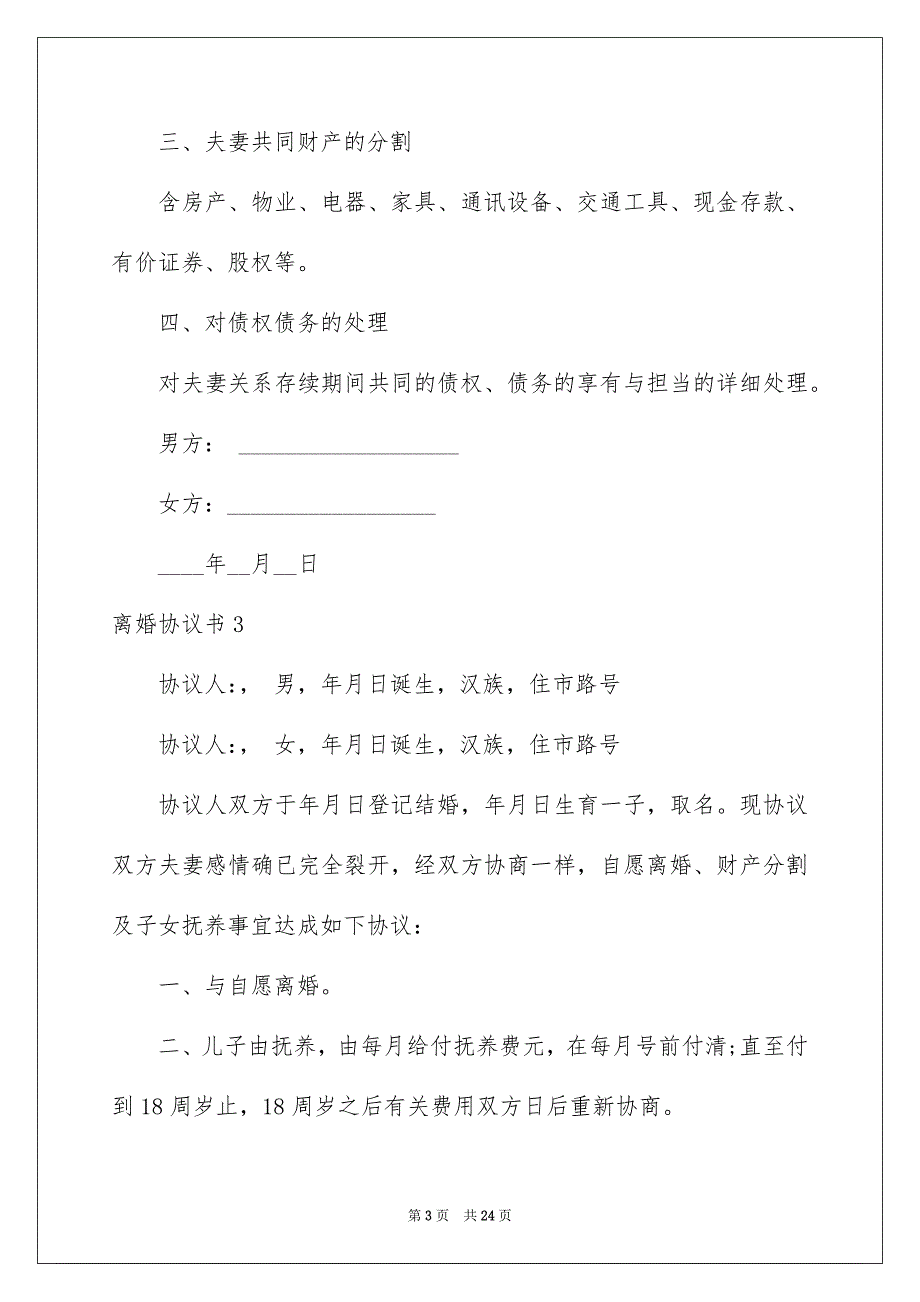 三、夫妻共同财产的分割
含房产、物业、电器、家具、通讯设备、交通工具、现金存款、
有价证券、股权等。
四、对债权债务的处理
对夫妻关系存续期间共同的债权、债务的享有与担当的详细处理。
男方： ___________________
女方：__________________
____年__月__日
离婚协议书 3
协议人：， 男，年月日诞生，汉族，住市路号
协议人：， 女，年月日诞生，汉族，住市路号
协议人双方于年月日登记结婚，年月日生育一子，取名。现协议
双方夫妻感情确已完全裂开，经双方协商一样，自愿离婚、财产分割
及子女抚养事宜达成如下协议：
一、与自愿离婚。
二、儿子由抚养，由每月给付抚养费元，在每月号前付清;直至付
到 18 周岁止，18 周岁之后有关费用双方日后重新协商。
第 3 页 共 24 页